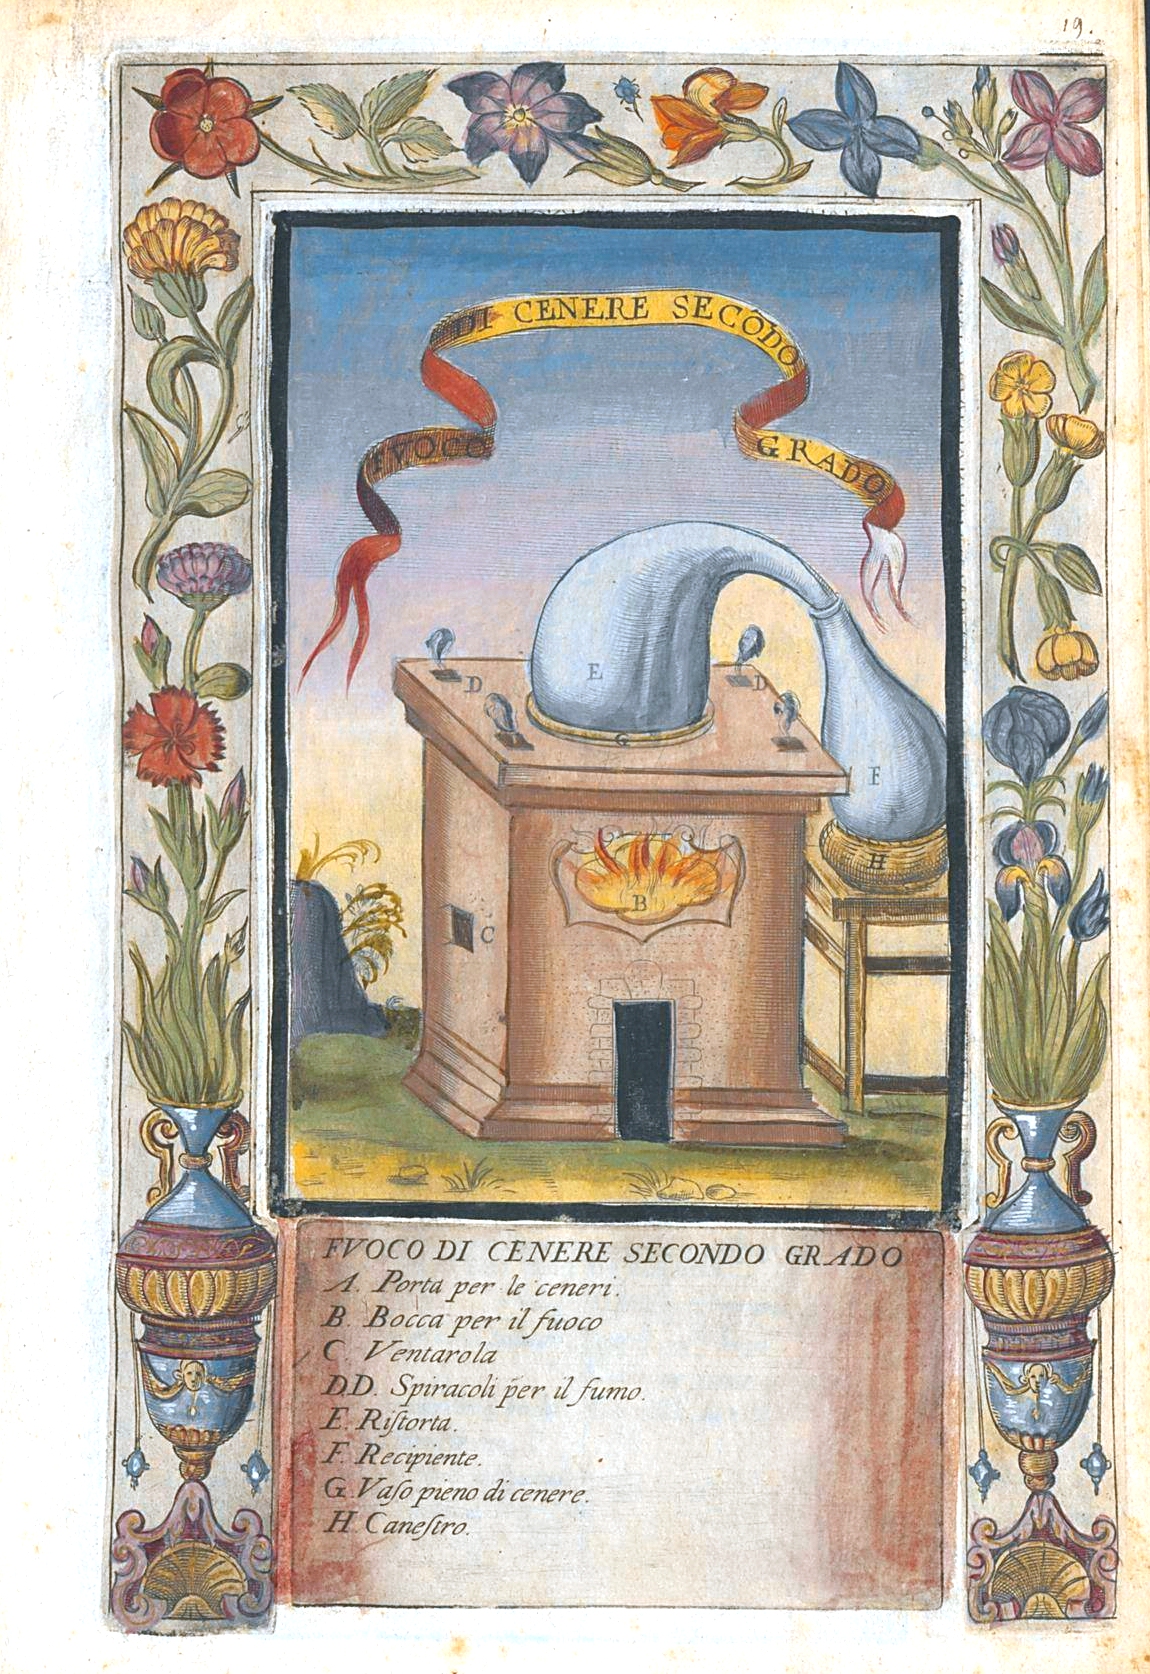 19.
FVOCO DI CENERE SECÕDO GRADO
E
D
D
G
F
H
B
C
FVOCO DI CENERE SECONDO GRADO
A. Porta per le ceneri.
B. Bocca per il fuoco
C. Ventarola
D.D. Spiracoli per il fumo.
E. Riſtorta.
F. Recipiente.
G. Vaſo pieno di cenere.
H. Caneſtro.